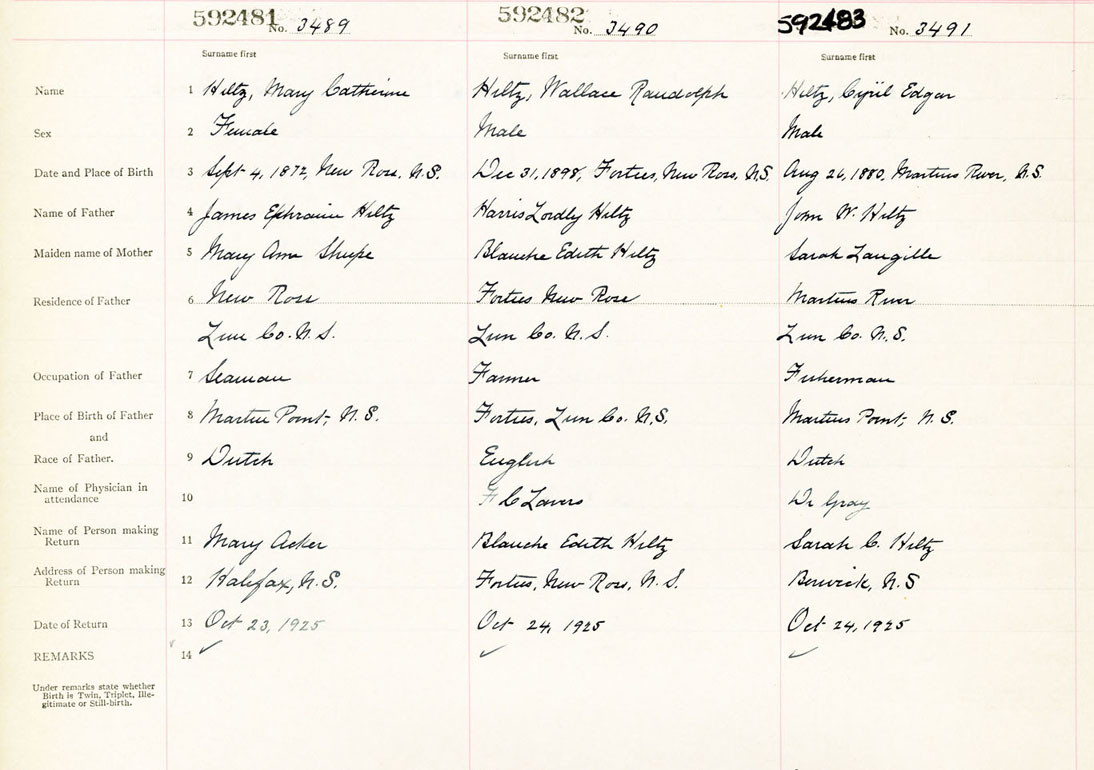 592481 No. 3489 592482 No. 3490 592483 No. 3491
Surname first Surname first Surname first
Name 1 Hiltz, Mary Catherine Hiltz, Wallace Randolph Hiltz, Cyril Edgar
Sex 2 Female Male Male
Date and Place of Birth 3 Sept 4, 1872, New Ross, N.S. Dec 31, 1898, Forties, New Ross, N.S. Aug 26, 1880, Martins River, N.S.
Name of Father 4 James Ephraim Hiltz Harris Lordly Hiltz John W. Hiltz
Maiden name of Mother 5 Mary Ann Shupe Blanche Edith Hiltz Sarah Langille
Residence of Father 6 New Ross Forties New Ross Martins River
Lun Co. N.S. Lun Co. N.S. Lun Co. N.S.
Occupation of Father 7 Seaman Farmer Fisherman
Place of Birth of Father 8 Martin Point, N.S. Forties, Lun Co. N.S. Martins Point, N.S.
and
Race of Father. 9 Dutch English Dutch
Name of Physician in
attendance 10 F C Lavers Dr Gray
Name of Person making
Return 11 Mary Acker Blanche Edith Hiltz Sarah C. Hiltz
Address of Person making
Return 12 Halifax, N.S. Forties, New Ross, N.S. Berwick, N.S
Date of Return 13 Oct 23, 1925 Oct 24, 1925 Oct 24, 1925
REMARKS 14
Under remarks state whether
Birth is Twin, Triplet, Ille-
gitimate or Still-birth.